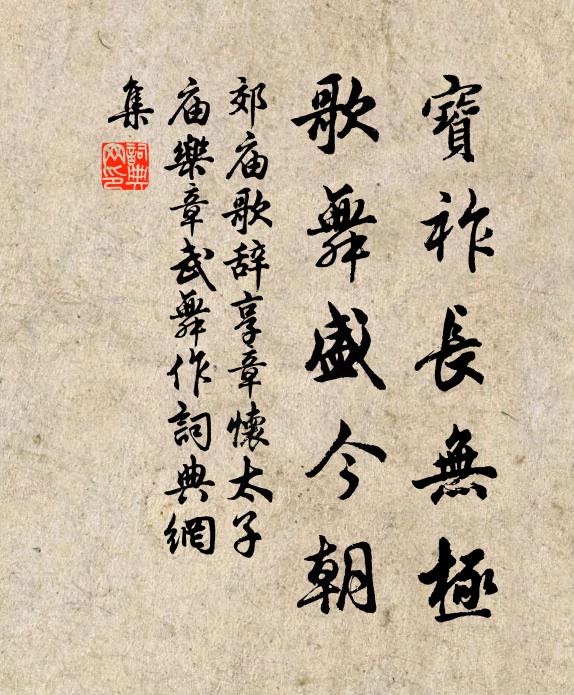 寶祚長無極
歌舞盛今朝
郊庙歌辞享章懷太子
庙樂章武舞作詞典網
集
詞典
网印